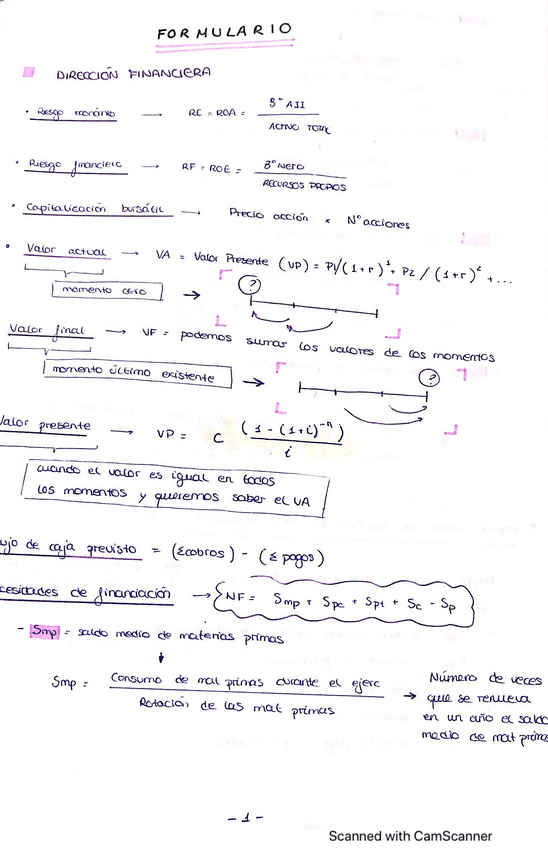 FORMULARIO
DIRECCIÓN FINANCIERA
• Riesgo económico → RE = ROA = Bº AII / ACTIVO TOTAL
• Riesgo financiero → RF = ROE = Bº Neto / RECURSOS PROPIOS
• Capitalización bursátil → Precio acción × Nº acciones
• Valor actual → VA = Valor Presente (VP) = P1/(1+r)¹ + P2/(1+r)² + ...
momento cero → ?
Valor final → VF = podemos sumar los valores de los momentos
momento último existente → ?
Valor presente → VP = C (1 - (1+i)⁻ⁿ) / i
cuando el valor es igual en todos
los momentos y queremos saber el VA
ujo de caja previsto = (Σcobros) - (Σ pagos)
cesidades de financiación → NF = Smp + Spc + Spt + Sc - Sp
- Smp = saldo medio de materias primas
Smp = Consumo de mat primas durante el ejerc / Rotación de las mat primas →
Número de veces
que se renueva
en un año el saldo
medio de mat primas
- 1 -
Scanned with CamScanner